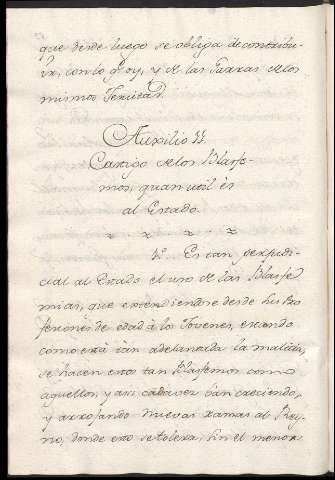 que desde luego se obliga de contribu-
ir, con lo q.e oy, y de las Tierras de los
mismos
Auxilio 11.
Castigo de los Blasfe-
mos, quan util ès
al Estado.
Es tan perjudi-
cial al Estado el uso de las Blasfe
mias, que extendiendose desde los
de edad à los Jovenes, estando
como està tan adelantada la malicia,
se hacen estos tan Blasfemos como
aquellos, y asi cada vez van creciendo,
y arrojando nuevas ramas al Rey-
no, donde esto se tolera, sin el menor